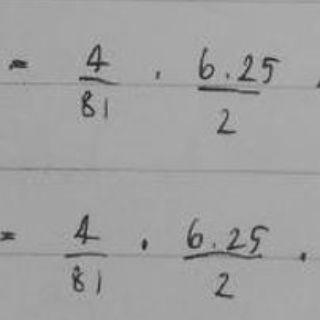 = 4/81 · 6.25/2 .
= 4/81 · 6.25/2 ·